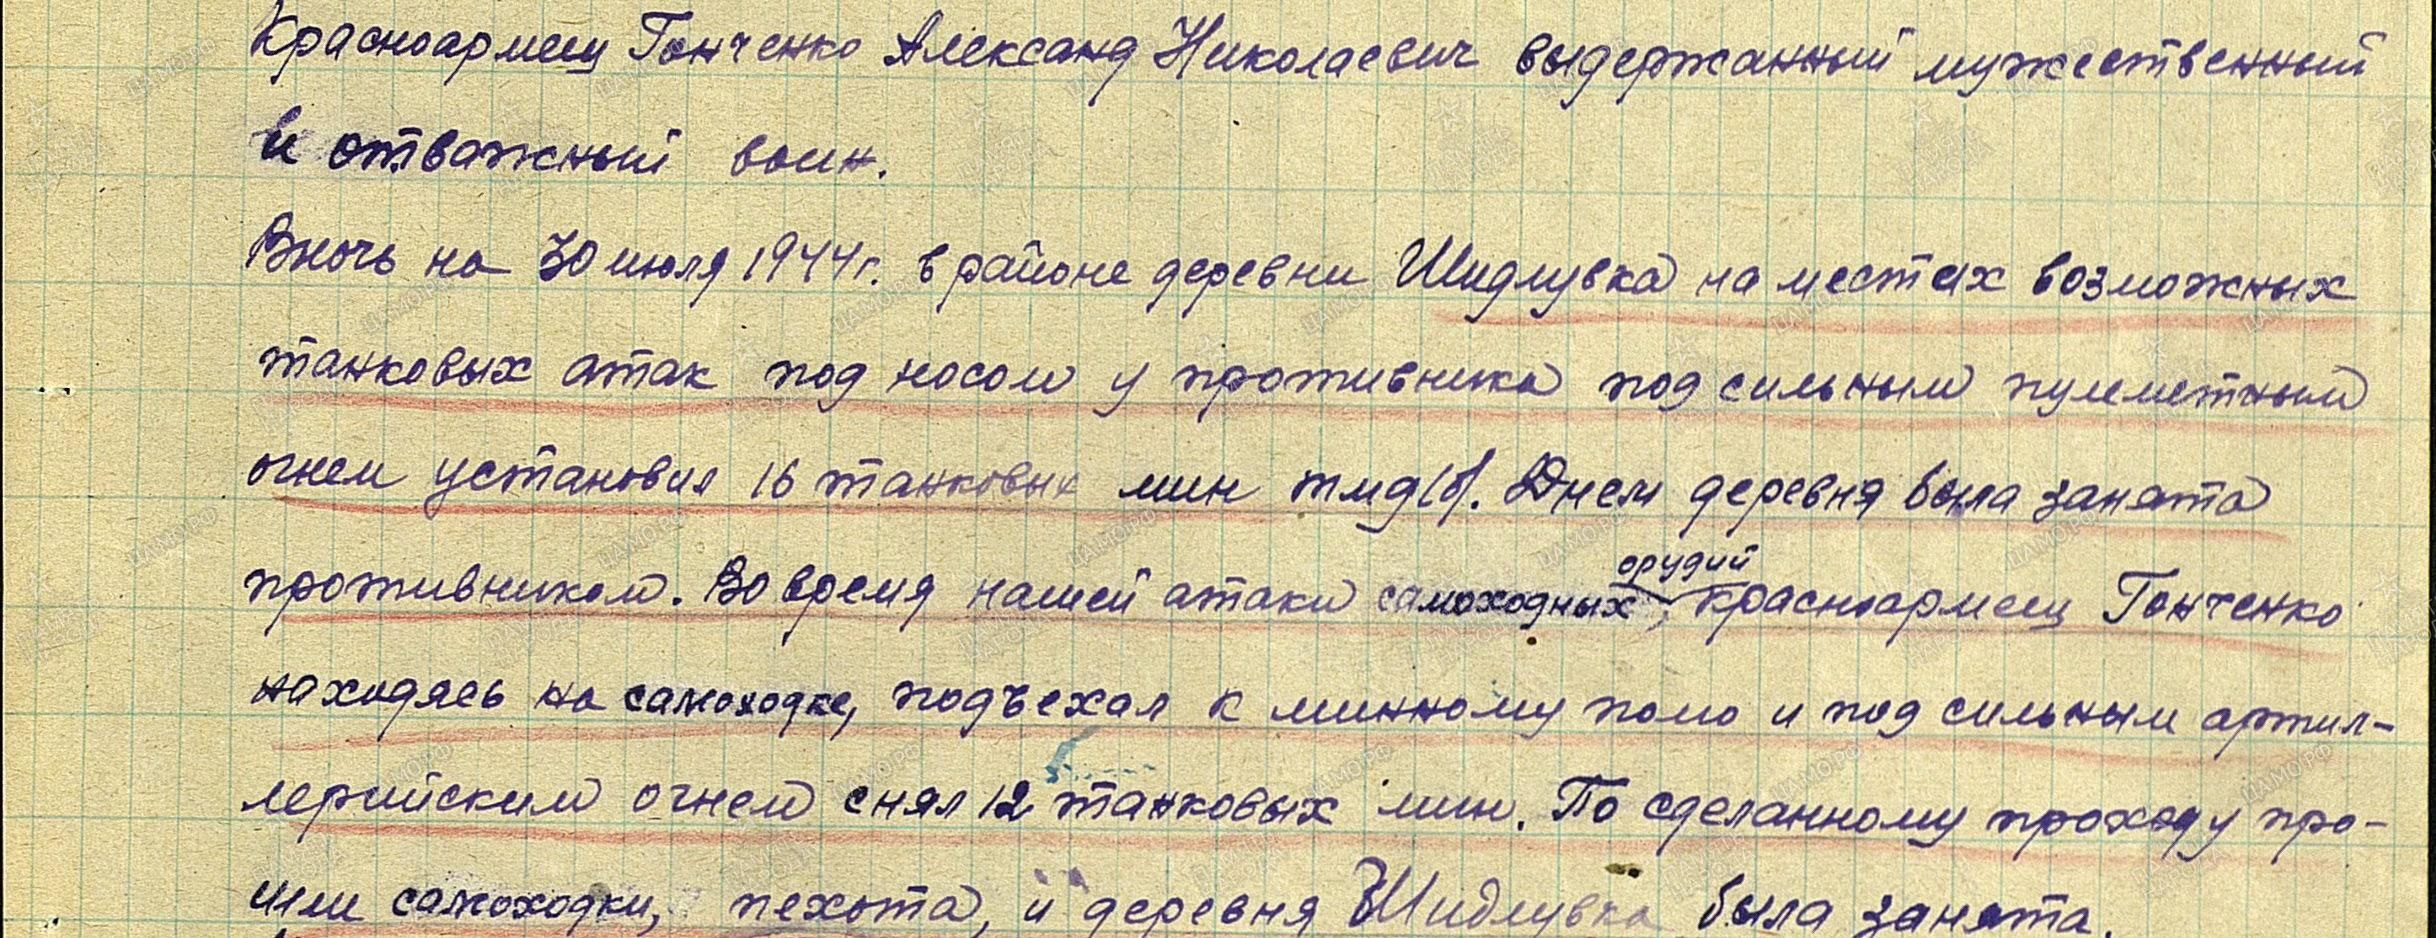 Красноармеец Гонченко Александ Николаевич выдержанный мужественный
и отважный воин.
В ночь на 30 июля 1944 г. в районе деревни Шидлувка на местах возможных
танковых атак под носом у противника под сильным пулеметным
огнем установил 16 танковых мин тмд(б). Днем деревня была занята
орудий
противником. Во время нашей атаки самоходных, красноармеец Гонченко
находясь на самоходке, подъехал к минному полю и под сильным артил-
лерийским огнем снял 12 танковых мин. По сделанному проходу про-
шли самоходки, пехота, и деревня Шидлувка была занята.